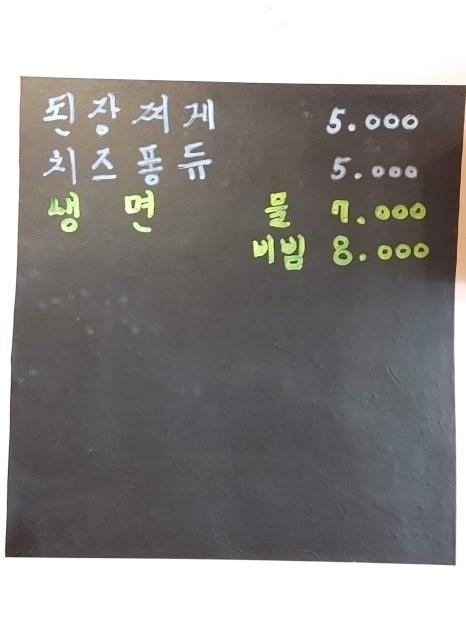 된장찌게 5.000
치즈퐁듀 5.000
쌩면 물 7.000
비빔 8.000